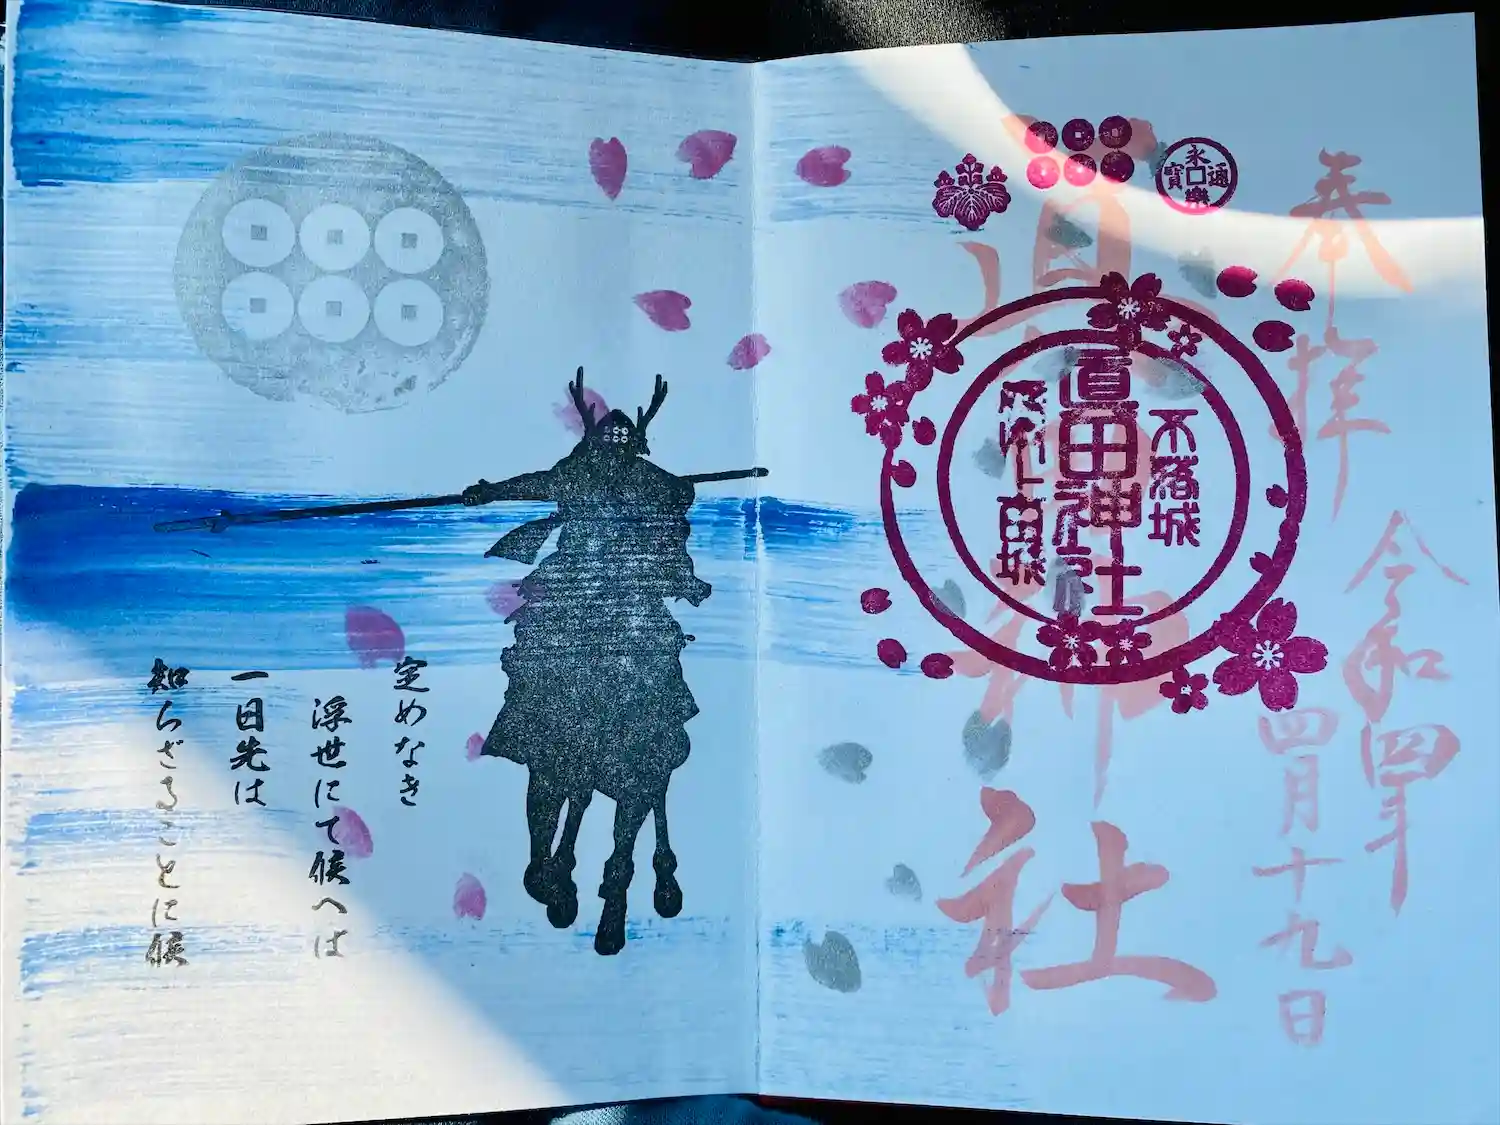 奉拝
令和四年
四月十九日
永樂通寶
眞田神社
不落城
眞田神社
上田城
定めなき
浮世にて候へは
一日先は
知らざることに候